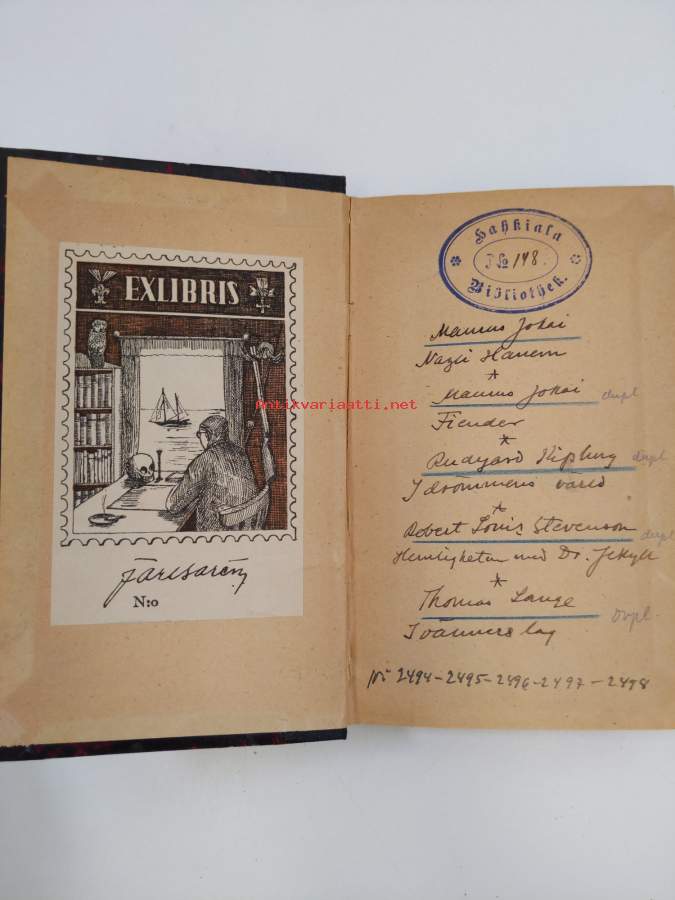 EXLIBRIS
N:o
Hahkiala
No 148.
Bibliothek.
Maurus Jokai
Nazli Hanem
*
Maurus Jokai dupl
Fiender
*
Rudyard Kipling dupl
I drömmens värld
*
Robert Louis Stevenson dupl
Hemligheten med Dr. Jekyll
*
Thomas Lange dupl.
I vänners lag
No 2494-2495-2496-2497-2498
antikvariaatti.net